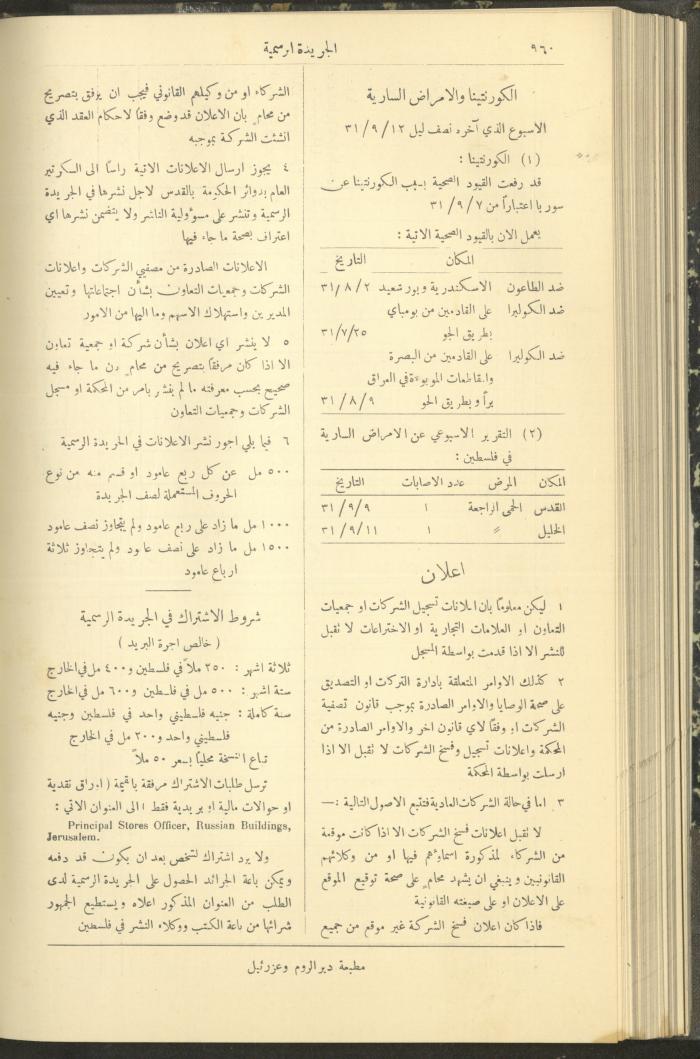 ٩٦٠
الجريدة الرسمية
الكورنتينا والامراض السارية
الاسبوع الذي آخره نصف ليل ١٢ / ٩ / ٣١
(١) الكورنتينا :
قد رفعت القيود الصحية بسبب الكورنتينا عن
سوريا اعتباراً من ٧ / ٩ / ٣١
يعمل الان بالقيود الصحية الاتية :
المكان التاريخ
ضد الطاعون الاسكندرية وبور سعيد ٢ / ٨ / ٣١
ضد الكوليرا على القادمين من بومباي
بطريق الجو ٢٥ / ٧ / ٣١
ضد الكوليرا على القادمين من البصرة
والمقاطعات الموبوءة في العراق
براً وبطريق الجو ٩ / ٨ / ٣١
(٢) التقرير الاسبوعي عن الامراض السارية
في فلسطين :
المكان المرض عدد الاصابات التاريخ
القدس الحمى الراجعة ١ ٩ / ٩ / ٣١
الخليل " ١ ١١ / ٩ / ٣١
اعلان
١ ليكن معلوماً بان اعلانات تسجيل الشركات او جمعيات
التعاون او العلامات التجارية او الاختراعات لا تقبل
للنشر الا اذا قدمت بواسطة المسجل
٢ كذلك الاوامر المتعلقة بادارة التركات او التصديق
على صحة الوصايا والاوامر الصادرة بموجب قانون تصفية
الشركات او وفقاً لاي قانون اخر والاوامر الصادرة من
المحكمة واعلانات تسجيل وفسخ الشركات لا تقبل الا اذا
ارسلت بواسطة المحكمة
٣ اما في حالة الشركات العادية فتتبع الاصول التالية :—
لا تقبل اعلانات فسخ الشركات الا اذا كانت موقعة
من الشركاء المذكورة اسماؤهم فيها او من وكلائهم
القانونيين وينبغي ان يشهد محام على صحة توقيع الموقع
على الاعلان او على صيغته القانونية
فاذا كان اعلان فسخ الشركة غير موقع من جميع
الشركاء او من وكيلهم القانوني فيجب ان يرفق بتصريح
من محام بان الاعلان قد وضع وفقاً لاحكام العقد الذي
انشئت الشركة بموجبه
٤ يجوز ارسال الاعلانات الاتية راساً الى السكرتير
العام بدوائر الحكومة بالقدس لاجل نشرها في الجريدة
الرسمية وتنشر على مسؤولية الناشر ولا يتضمن نشرها اي
اعتراف بصحة ما جاء فيها
الاعلانات الصادرة من مصفيي الشركات واعلانات
الشركات وجمعيات التعاون بشأن اجتماعاتها وتعيين
المديرين واستهلاك الاسهم وما اليها من الامور
٥ لا ينشر اي اعلان بشأن شركة او جمعية تعاون
الا اذا كان مرفقاً بتصريح من محام بان ما جاء فيه
صحيح بحسب معرفته ما لم ينشر بامر من المحكمة او مسجل
الشركات وجمعيات التعاون
٦ فيما يلي اجور نشر الاعلانات في الجريدة الرسمية
٥٠٠ مل عن كل ربع عامود او قسم منه من نوع
الحروف المستعملة لصف الجريدة
١٠٠٠ مل ما زاد على ربع عامود ولم يتجاوز نصف عامود
١٥٠٠ مل ما زاد على نصف عامود ولم يتجاوز ثلاثة
ارباع عامود
شروط الاشتراك في الجريدة الرسمية
( خالص اجرة البريد )
ثلاثة اشهر : ٢٥٠ ملاً في فلسطين و٤٠٠ مل في الخارج
ستة اشهر : ٥٠٠ مل في فلسطين و٦٠٠ مل في الخارج
سنة كاملة : جنيه فلسطيني واحد في فلسطين وجنيه
فلسطيني واحد و٢٠٠ مل في الخارج
تباع النسخة محلياً بسعر ٥٠ ملاً
ترسل طلبات الاشتراك مرفقة بالقيمة ( اوراق نقدية
او حوالات مالية او بريدية فقط ) الى العنوان الاتي :
Principal Stores Officer, Russian Buildings,
Jerusalem.
ولا يرد اشتراك لشخص بعد ان يكون قد دفعه
ويمكن باعة الجرائد الحصول على الجريدة الرسمية لدى
الطلب من العنوان المذكور اعلاه ويستطيع الجمهور
شرائها من باعة الكتب ووكلاء النشر في فلسطين
مطبعة دير الروم وعزرئيل